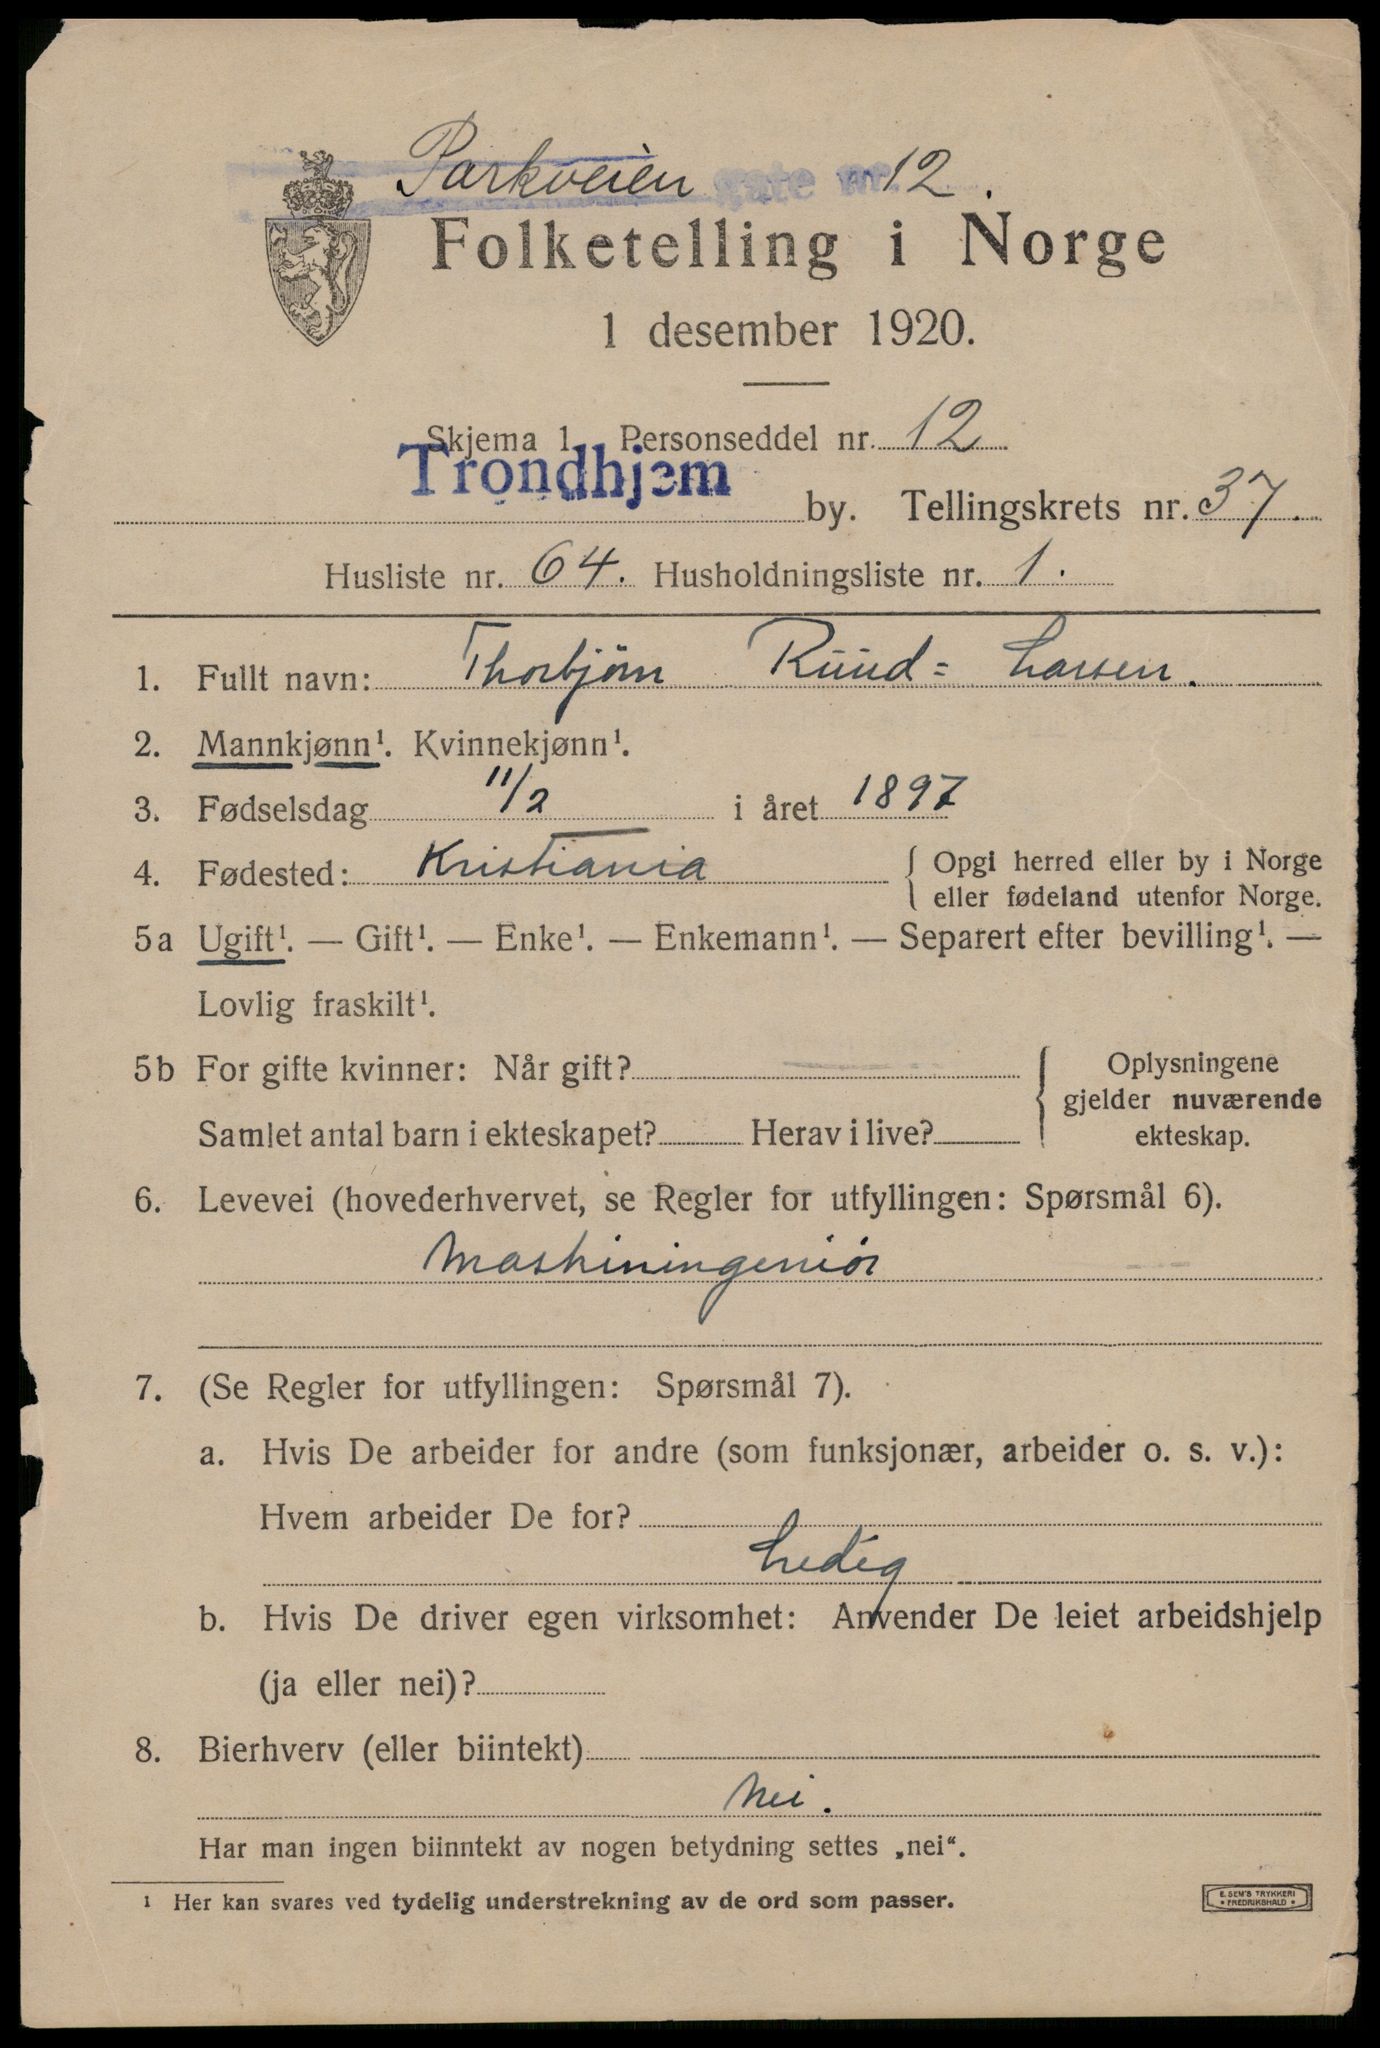 Parkveien gate nr. 12.
Folketelling i Norge
1 desember 1920.
Skjema 1 Personseddel nr. 12
Trondhjem by. Tellingskrets nr. 37.
Husliste nr. 64. Husholdningsliste nr. 1.
1. Fullt navn: Thorbjörn Ruud = Larsen.
2. Mannkjønn¹. Kvinnekjønn¹.
3. Fødselsdag 11/2 i året 1897
4. Fødested: Kristiania { Opgi herred eller by i Norge
eller fødeland utenfor Norge.
5a Ugift¹. — Gift¹. — Enke¹. — Enkemann¹. — Separert efter bevilling¹. —
Lovlig fraskilt¹.
5b For gifte kvinner: Når gift? { Oplysningene
gjelder nuværende
Samlet antal barn i ekteskapet? Herav i live? ekteskap.
6. Levevei (hovederhvervet, se Regler for utfyllingen: Spørsmål 6).
Maskiningeniör
7. (Se Regler for utfyllingen: Spørsmål 7).
a. Hvis De arbeider for andre (som funksjonær, arbeider o. s. v.):
Hvem arbeider De for?
Ledig
b. Hvis De driver egen virksomhet: Anvender De leiet arbeidshjelp
(ja eller nei)?
8. Bierhverv (eller biintekt)
Nei.
Har man ingen biinntekt av nogen betydning settes „nei“.
1 Her kan svares ved tydelig understrekning av de ord som passer.
E. SEM'S TRYKKERI
• FREDRIKSHALD •